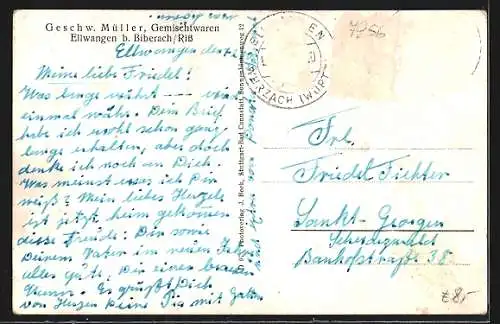 Geschw. Müller, Gemischtwaren
Ellwangen b. Biberach/Riß
Ellwangen den
Meine liebe Friedel!
Was lange währt — wird
einmal wahr. Dein Brief
habe ich wohl schon ganz
lange erhalten, aber doch
denke ich noch an Dich.
Was meinst was ich Dir
weiß? Mein liebes
ist jetzt heim gekommen
diese Freude! Dir sowie
Deinem Vater im neuen Jahr
alles Gute, Dir einen
Mann. Es grüßt Dich
von Herzen Deine Pia mit
Photoverlag J. Heck, Stuttgart-Bad Cannstatt
WURZACH (WÜRTT)
7956
Frl.
Friedel Fichter
Sankt-Georgen
Schwarzwald
Bahnhofstraße 38
€ 8,-